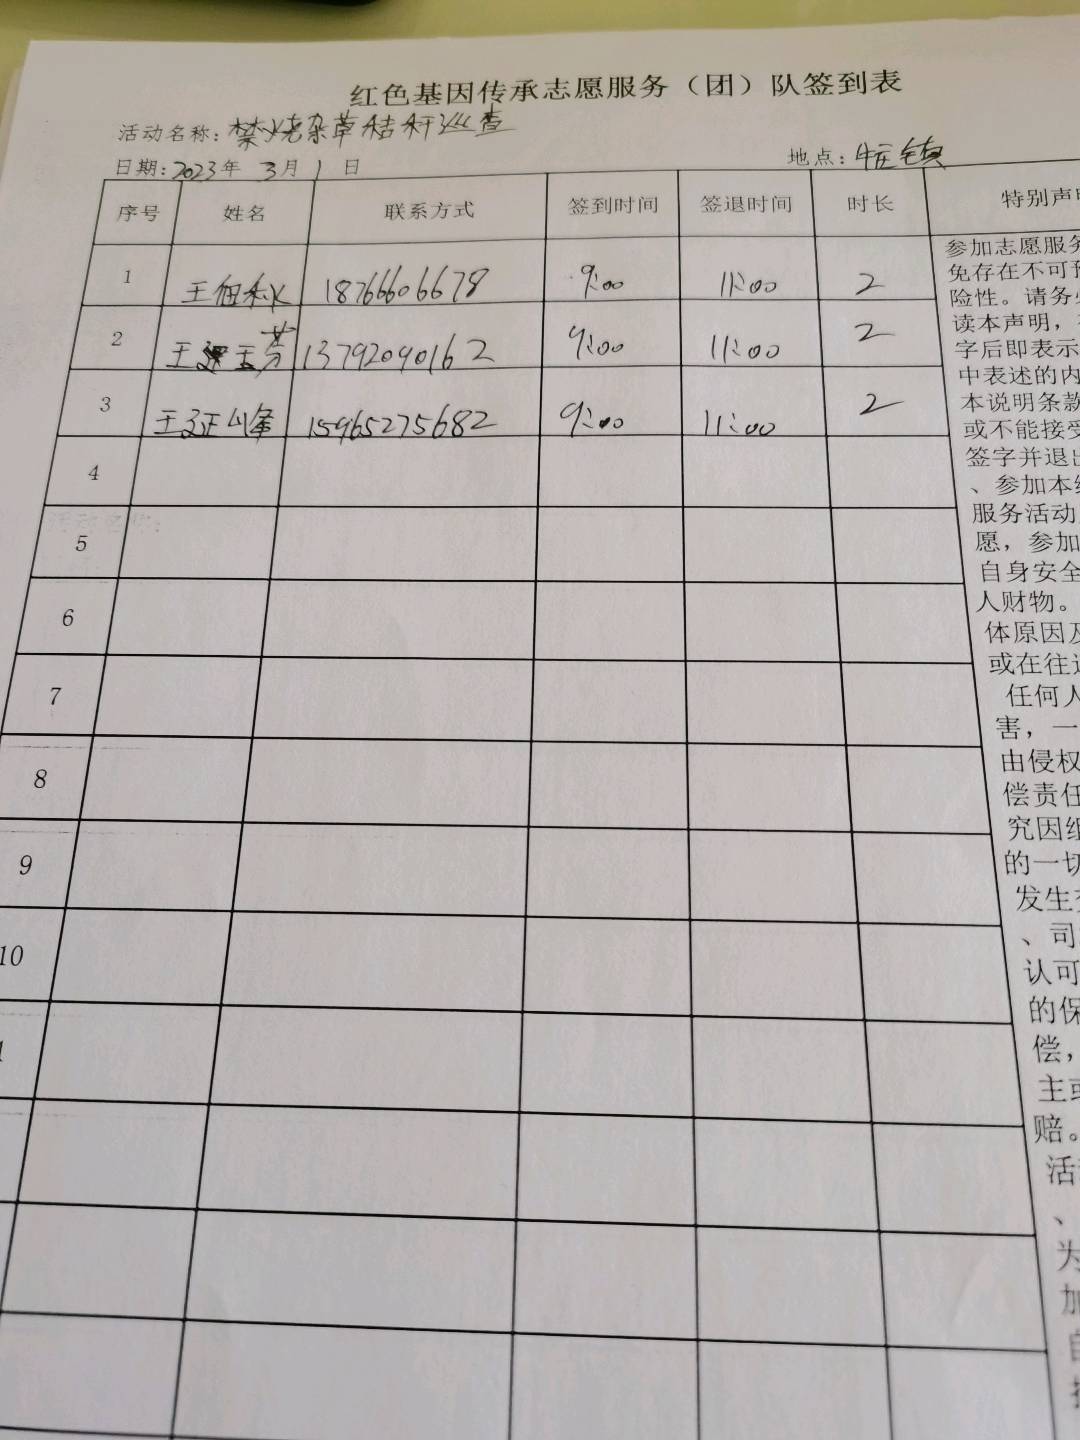 红色基因传承志愿服务（团）队签到表
活动名称：禁烧杂草秸秆巡查
日期：2023年 3月 1 日 地点：镇
序号 姓名 联系方式 签到时间 签退时间 时长 特别声明
1 王 18766606678 9:00 11:00 2
2 王玉芳 13792090162 9:00 11:00 2
3 王延峰 15965275682 9:00 11:00 2
4
5
6
7
8
9
10
参加志愿服务
免存在不可预
险性。请务必
读本声明，
字后即表示
中表述的内
本说明条款
或不能接受
签字并退出
、参加本组
服务活动
愿，参加
自身安全
人财物。
体原因及
或在往返
任何人
害，一
由侵权
偿责任
究因组
的一切
发生
、司
认可
的保
偿，
主或
赔。
活
、
为
加
自